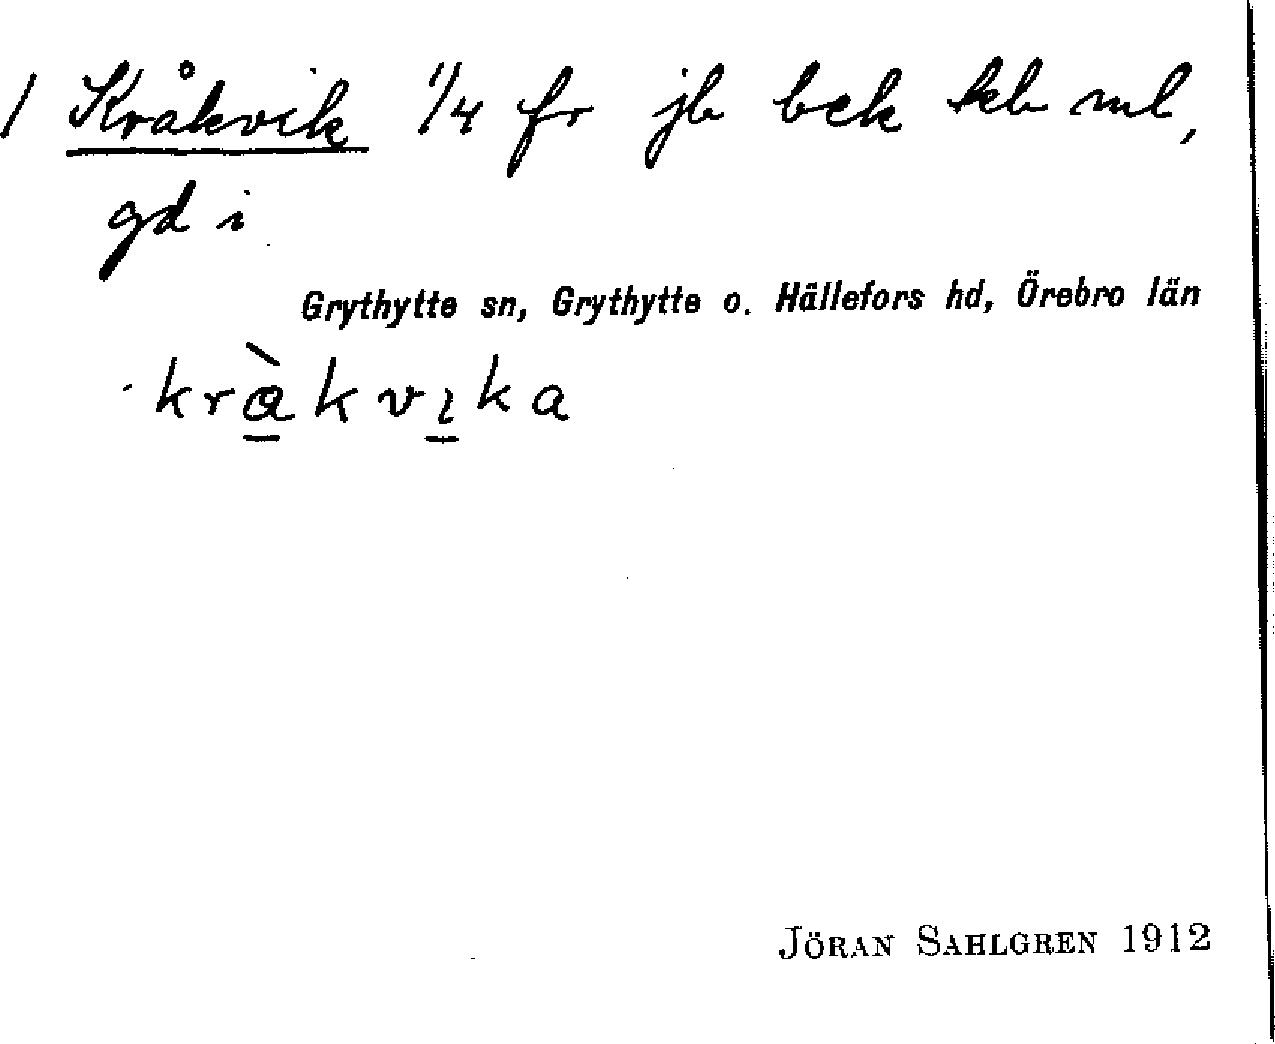 / Kråkvik 1/4 fr jb bek kb ml,
gd i
Grythytte sn, Grythytte o. Hällefors hd, Örebro län
kràkvıka
JÖRAN SAHLGREN 1912